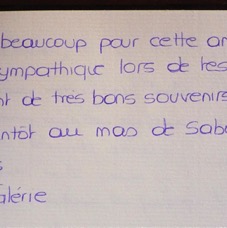 beaucoup pour cette an
sympathique lors de tes
nt de très bons souvenirs
entôt au mas de Sab
s
alérie